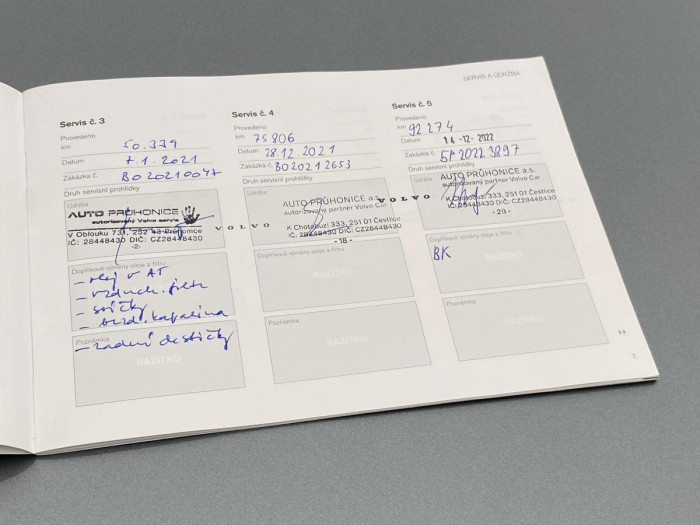 SERVIS A ÚDRŽBA
Servis č. 3
Provedeno
km 50.339
Datum 7.1.2021
Zakázka č. BO20210047
Druh servisní prohlídky
Údržba
AUTO PRŮHONICE
autorizovaný Volvo servis
V Oblouku 731, 252 43 Průhonice
IČ: 28448430 DIČ: CZ28448430
-2-
Doplňkové výměny oleje a filtru
- olej v AT
- vzduch. filtr
- svíčky
- brzd. kapalina
Poznámka
- zadní destičky
RAZÍTKO
Servis č. 4
Provedeno
km 75806
Datum 28.12.2021
Zakázka č. BO20212653
Druh servisní prohlídky
Údržba
AUTO PRŮHONICE a.s.
autorizovaný partner Volvo Car
VOLVO
K Chotobuzi 333, 251 01 Čestlice
IČ: 28448430 DIČ: CZ28448430
-18-
Doplňkové výměny oleje a filtru
RAZÍTKO
Poznámka
RAZÍTKO
Servis č. 5
Provedeno
km 92274
Datum 14 -12- 2022
Zakázka č.
Druh servisní prohlídky
Údržba
AUTO PRŮHONICE a.s.
autorizovaný partner Volvo Car
VOLVO
K Chotobuzi 333, 251 01 Čestlice
IČ: 28448430 DIČ: CZ28448430
-20-
Doplňkové výměny oleje a filtru
BK
RAZÍTKO
Poznámka
RAZÍTKO
7